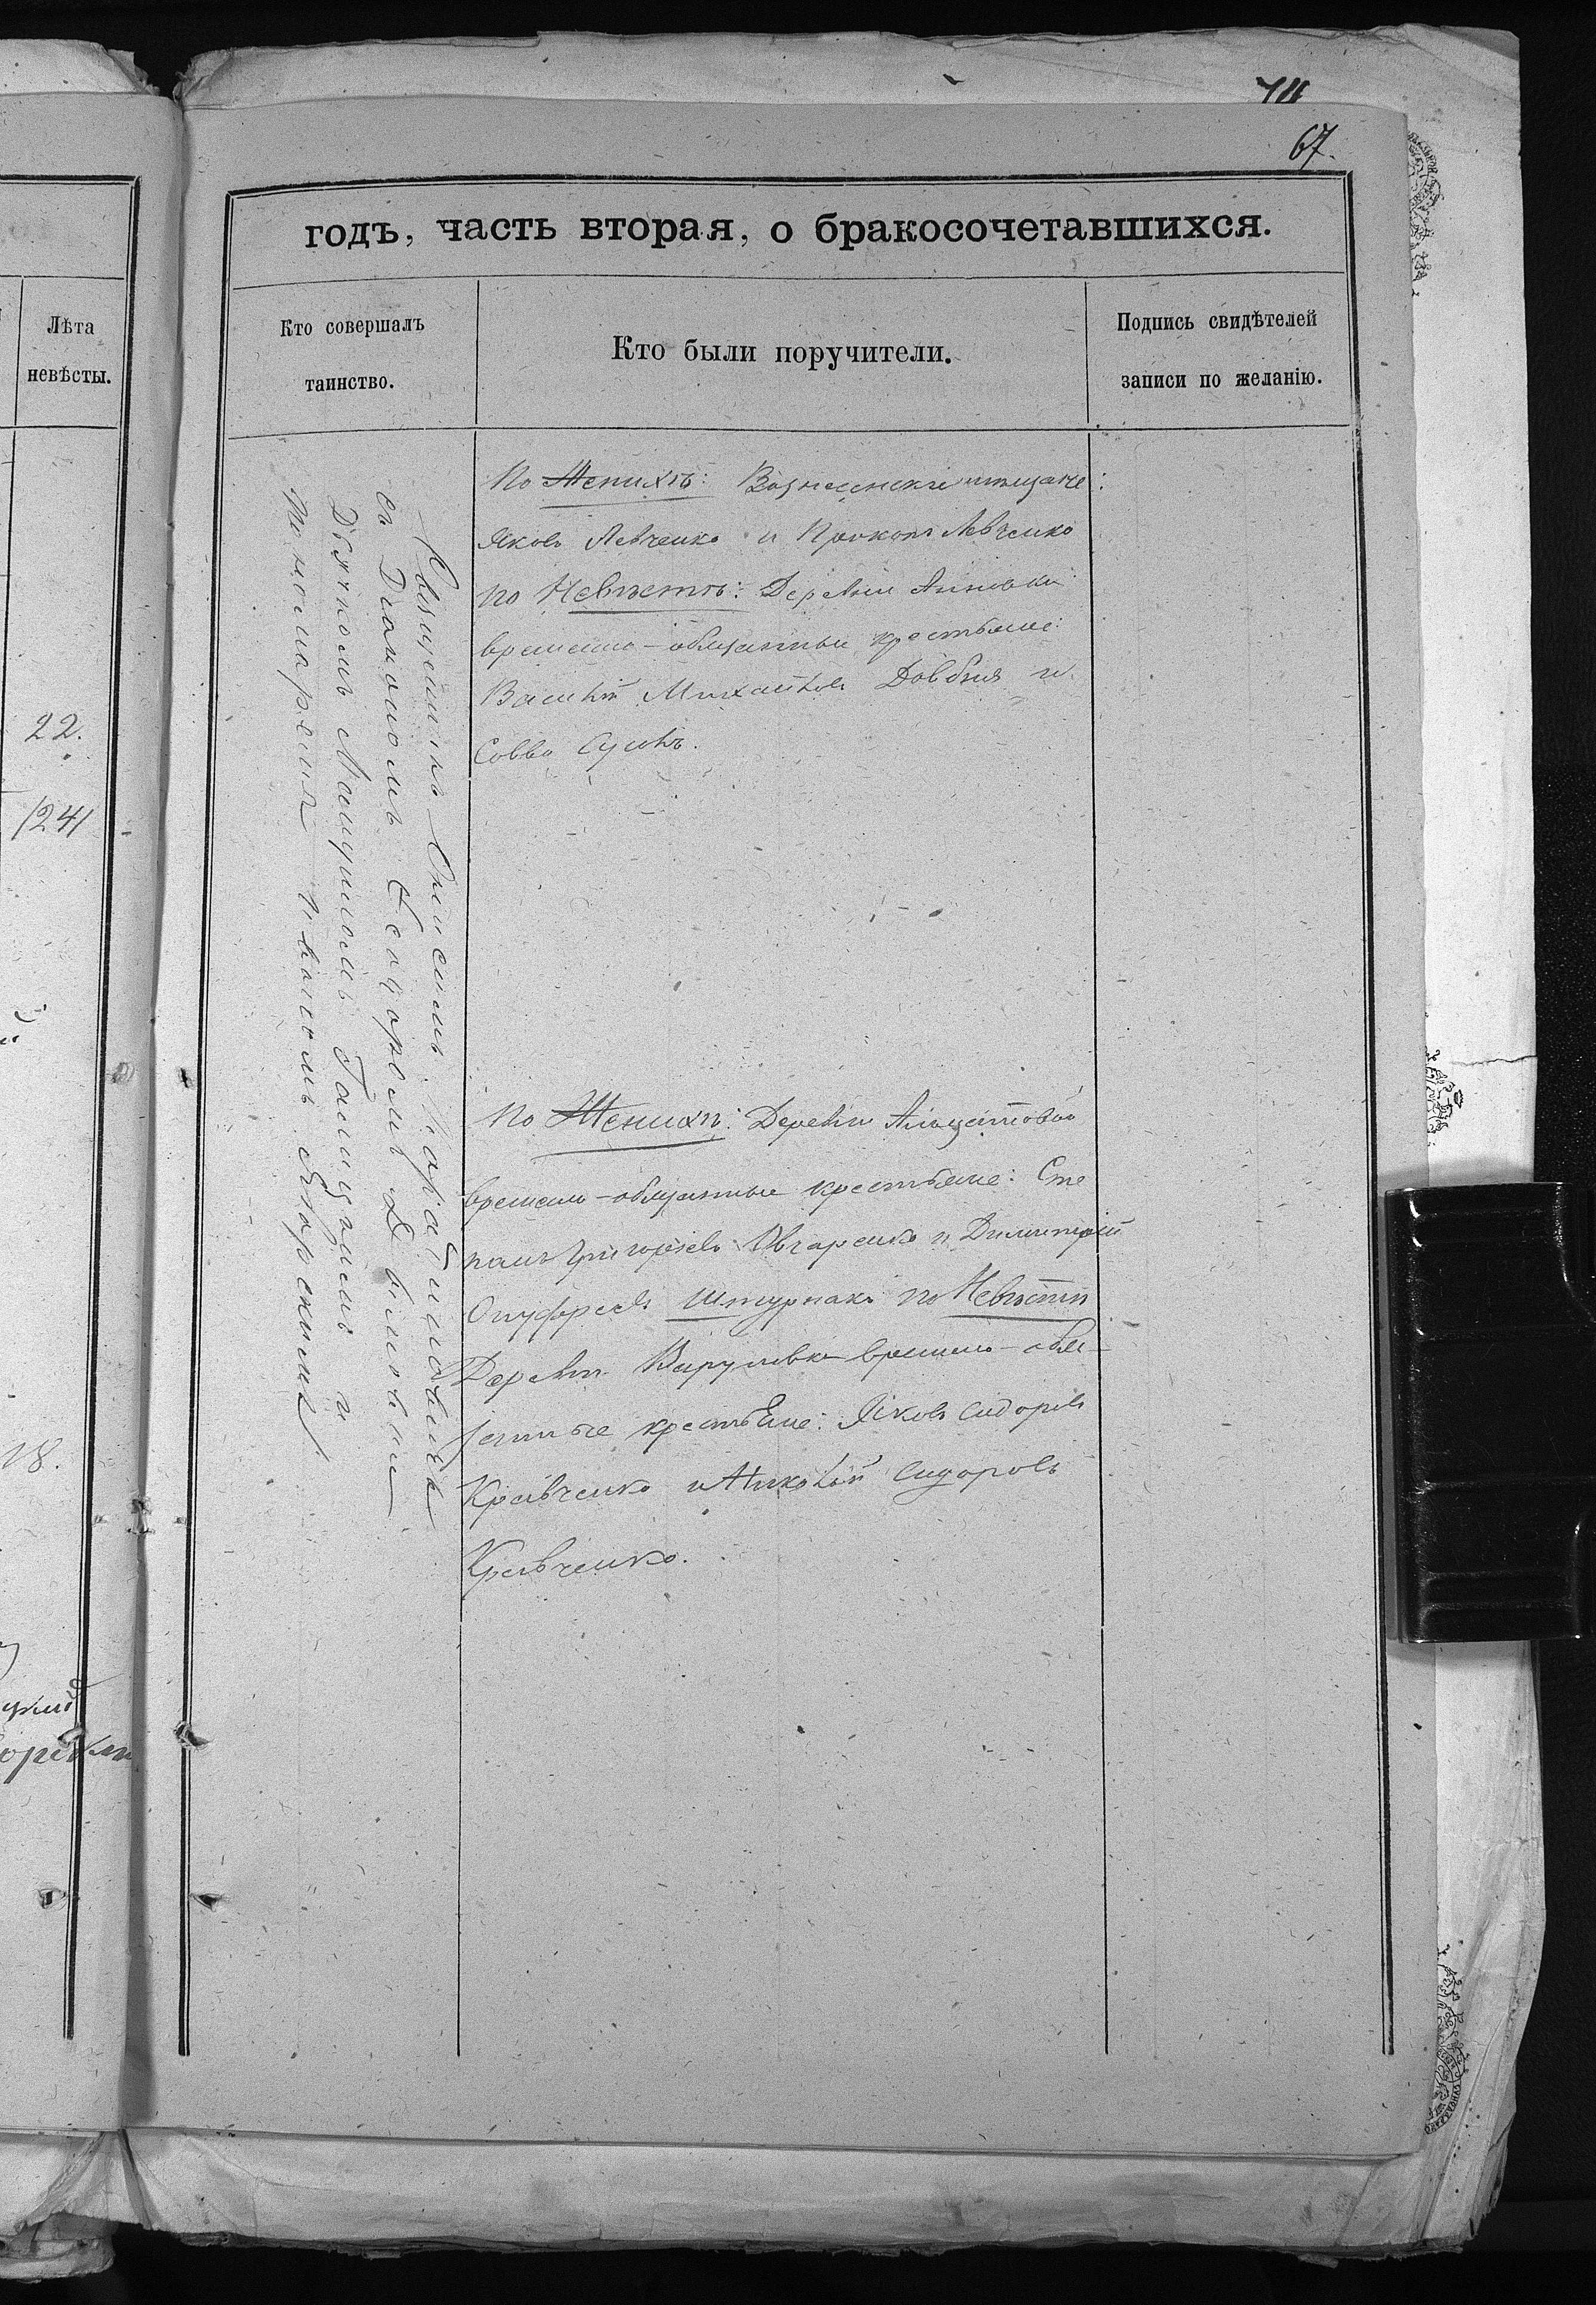 67.
годъ, часть вторая, о бракосочетавшихся.
Лѣта
невѣсты.
Кто совершалъ
таинство.
Кто были поручители.
Подпись свидѣтелей
записи по желанію.
22.
/24/
18.
Священникъ Онисимъ
съ Діакономъ Ѳеодоромъ
Дьячкомъ Галицкимъ и
Пономаремъ Яворскимъ
По Женихѣ: Вознесенскіе мѣщане:
Яковъ Левченко и Прокопъ Левченко
по Невѣстѣ: Деревни Анновки
временно-обязанные крестьяне:
Василій Михайловъ Довбня и
Савва Сусолъ.
По Женихѣ: Деревни
временно-обязанные крестьяне: Сте
панъ Григорьевъ Овчаренко и Димитрій
Онуфріевъ Штурпакъ по Невѣстѣ
Деревни временно-обя-
занные крестьяне: Яковъ Сидоровъ
Кравченко и Николай Сидоровъ
Кравченко.